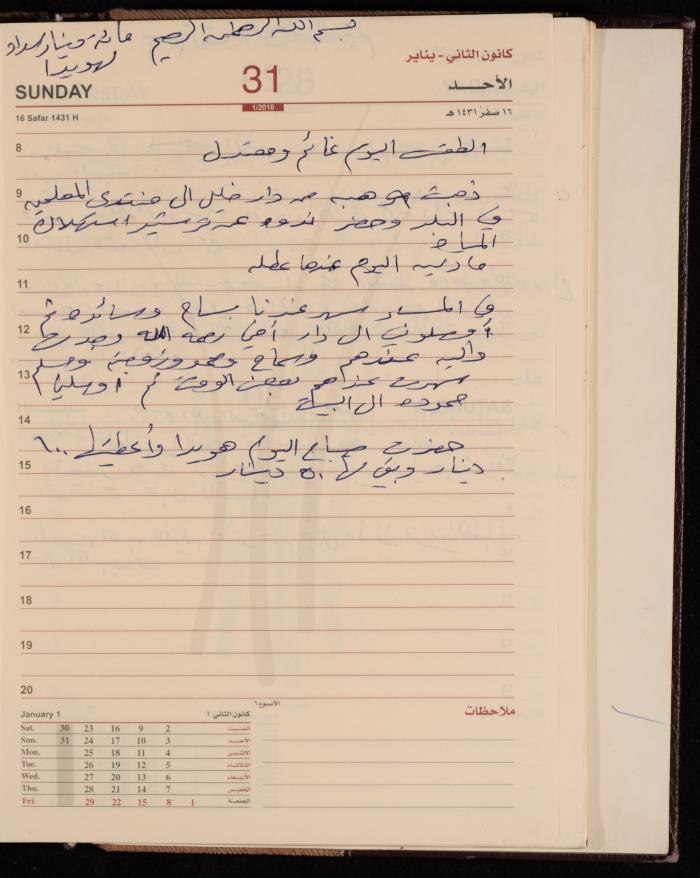 بسم الله الرحمن الرحيم مائة دينار سداد
لهويدا
كانون الثاني - يناير
SUNDAY 31 الأحـــد
1/2010
16 Safar 1431 H ١٦ صفر ١٤٣١ هـ
8 الطقس اليوم غائم ومعتدل
9 ذهبت هبه دار خليل الى منتدى المعلمين
في البلد وحضر ندوه عن ترشيد استهلاك
10 المياه
اليوم عندها عطله
11
في المساء سهر عندنا سماح وسائده ثم
12 أوصلوني الى دار أخي رحمة الله
واليه عندهم وسماح
13 سهرت عندهم بعض الوقت ثم أوصلني
حموده الى البيت
14
حضرت صباح اليوم هويدا وأعطيتها ٦٠٠
15 دينار وبقي لها ٥٠ دينار
16
17
18
19
20
الأسبوع ٦
January 1 كانون الثاني ١ ملاحظات
Sat. 30 23 16 9 2 السبت
Sun. 31 24 17 10 3 الأحد
Mon. 25 18 11 4 الاثنين
Tue. 26 19 12 5 الثلاثاء
Wed. 27 20 13 6 الأربعاء
Thu. 28 21 14 7 الخميس
Fri. 29 22 15 8 1 الجمعة